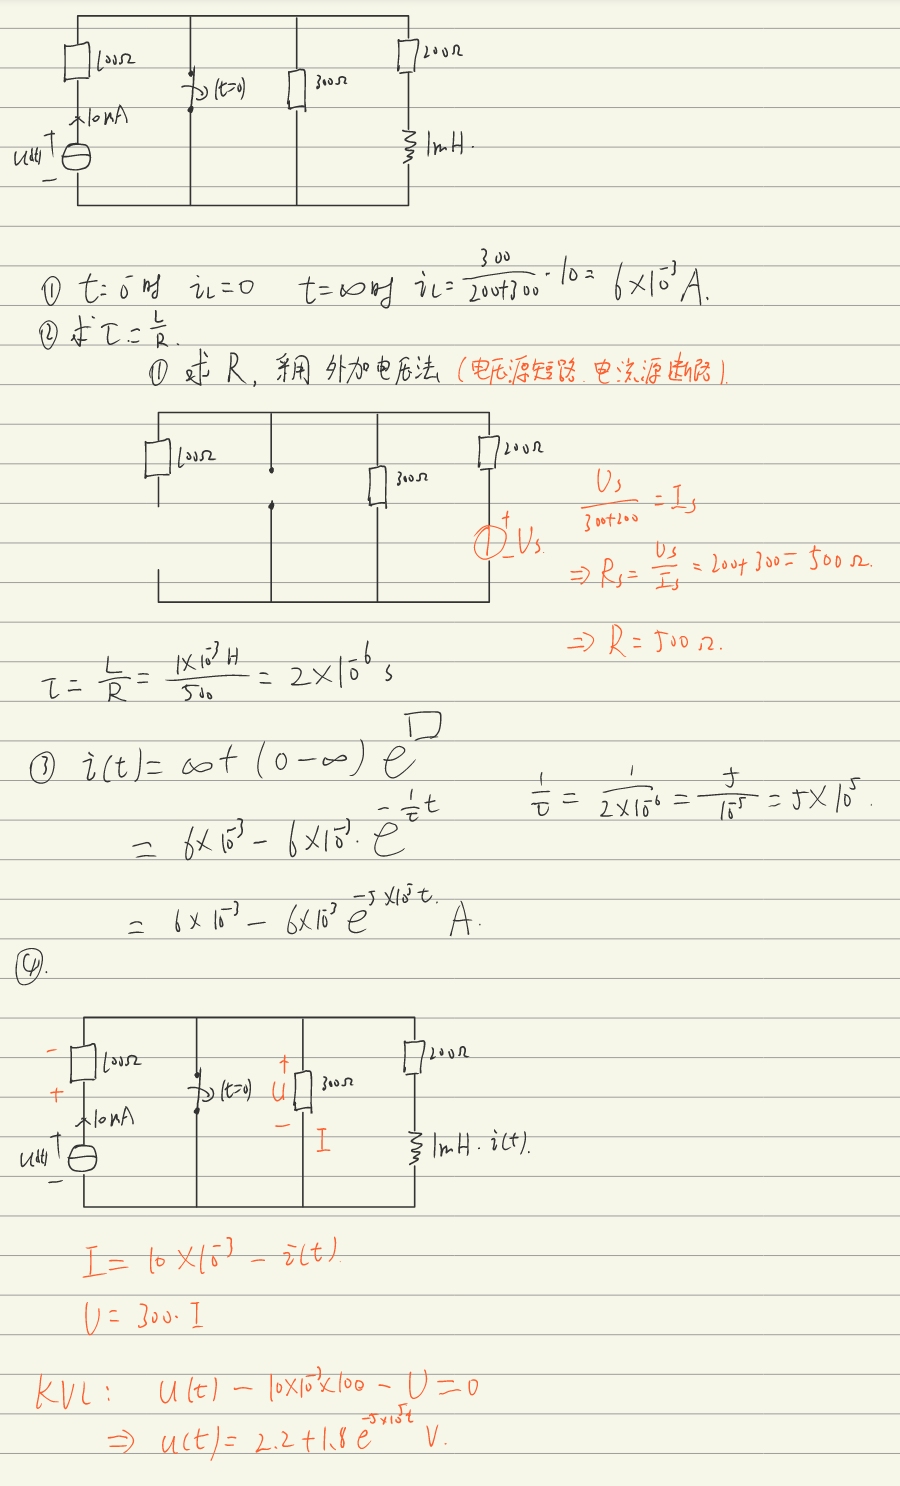 100Ω
200Ω
(t=0)
300Ω
10mA
+
u(t)
−
1mH.
① t=0⁻时 iL=0 t=∞时 iL=300/(200+300)·10=6×10⁻³A.
② 求τ=L/R.
① 求R, 采用外加电压法(电压源短路.电流源断路).
100Ω
300Ω
200Ω
+
−
Us.
Us/(300+200)=Is
⇒ Rs=Us/Is=200+300=500Ω.
⇒ R=500Ω.
τ=L/R=1×10⁻³H/500=2×10⁻⁶s
③ i(t)=∞+(0-∞)e^□
=6×10⁻³-6×10⁻³·e^(-1/τ t)
1/τ=1/(2×10⁻⁶)=5/10⁻⁵=5×10⁵.
=6×10⁻³-6×10⁻³e^(-5×10⁵t) A.
④.
−
100Ω
+
200Ω
(t=0)
U
300Ω
−
I
10mA
+
u(t)
−
1mH.i(t).
I=10×10⁻³-i(t)
U=300·I
KVL: u(t)-10×10⁻³×100-U=0
⇒ u(t)=2.2+1.8e^(-5×10⁵t) V.